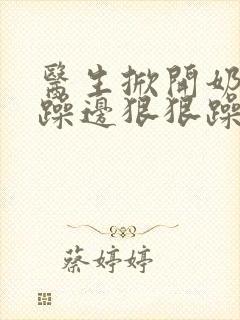 醫生掀開奶
躁邊狠狠躁
蔡婷婷